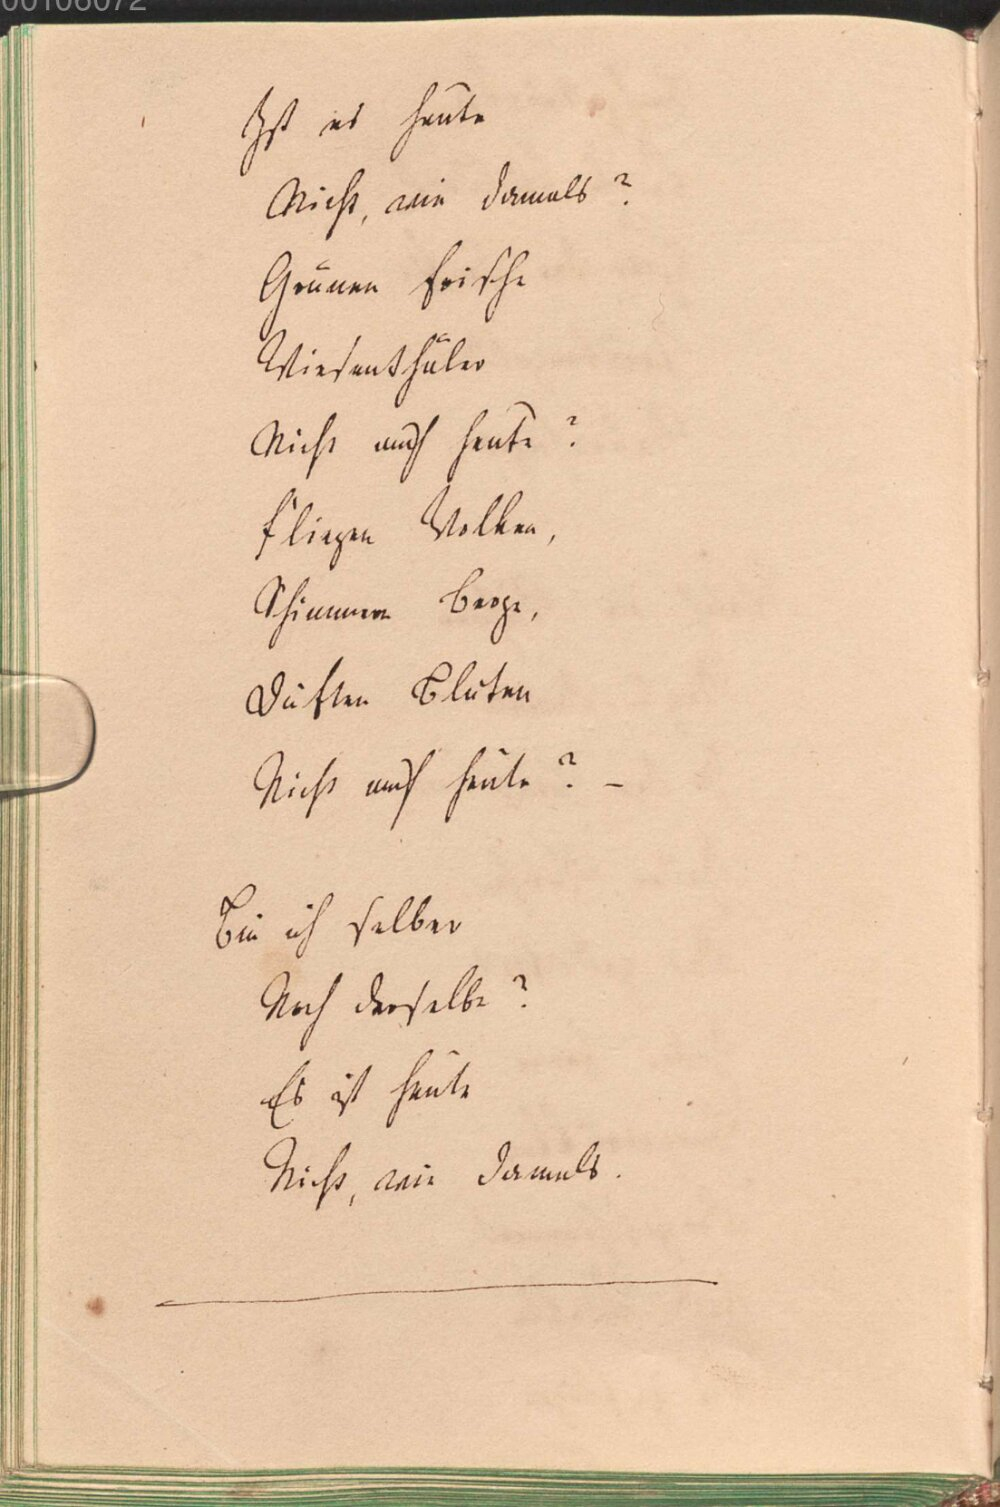 00106072
Ist es heute
Nicht, wie damals?
Grünen frische
Wiesenthäler
Nicht auch heute?
Fliegen Wolken,
Schimmern Berge,
Duften Blüten
Nicht auch heute? –
Bin ich selber
Noch derselbe?
Es ist heute
Nicht, wie damals.